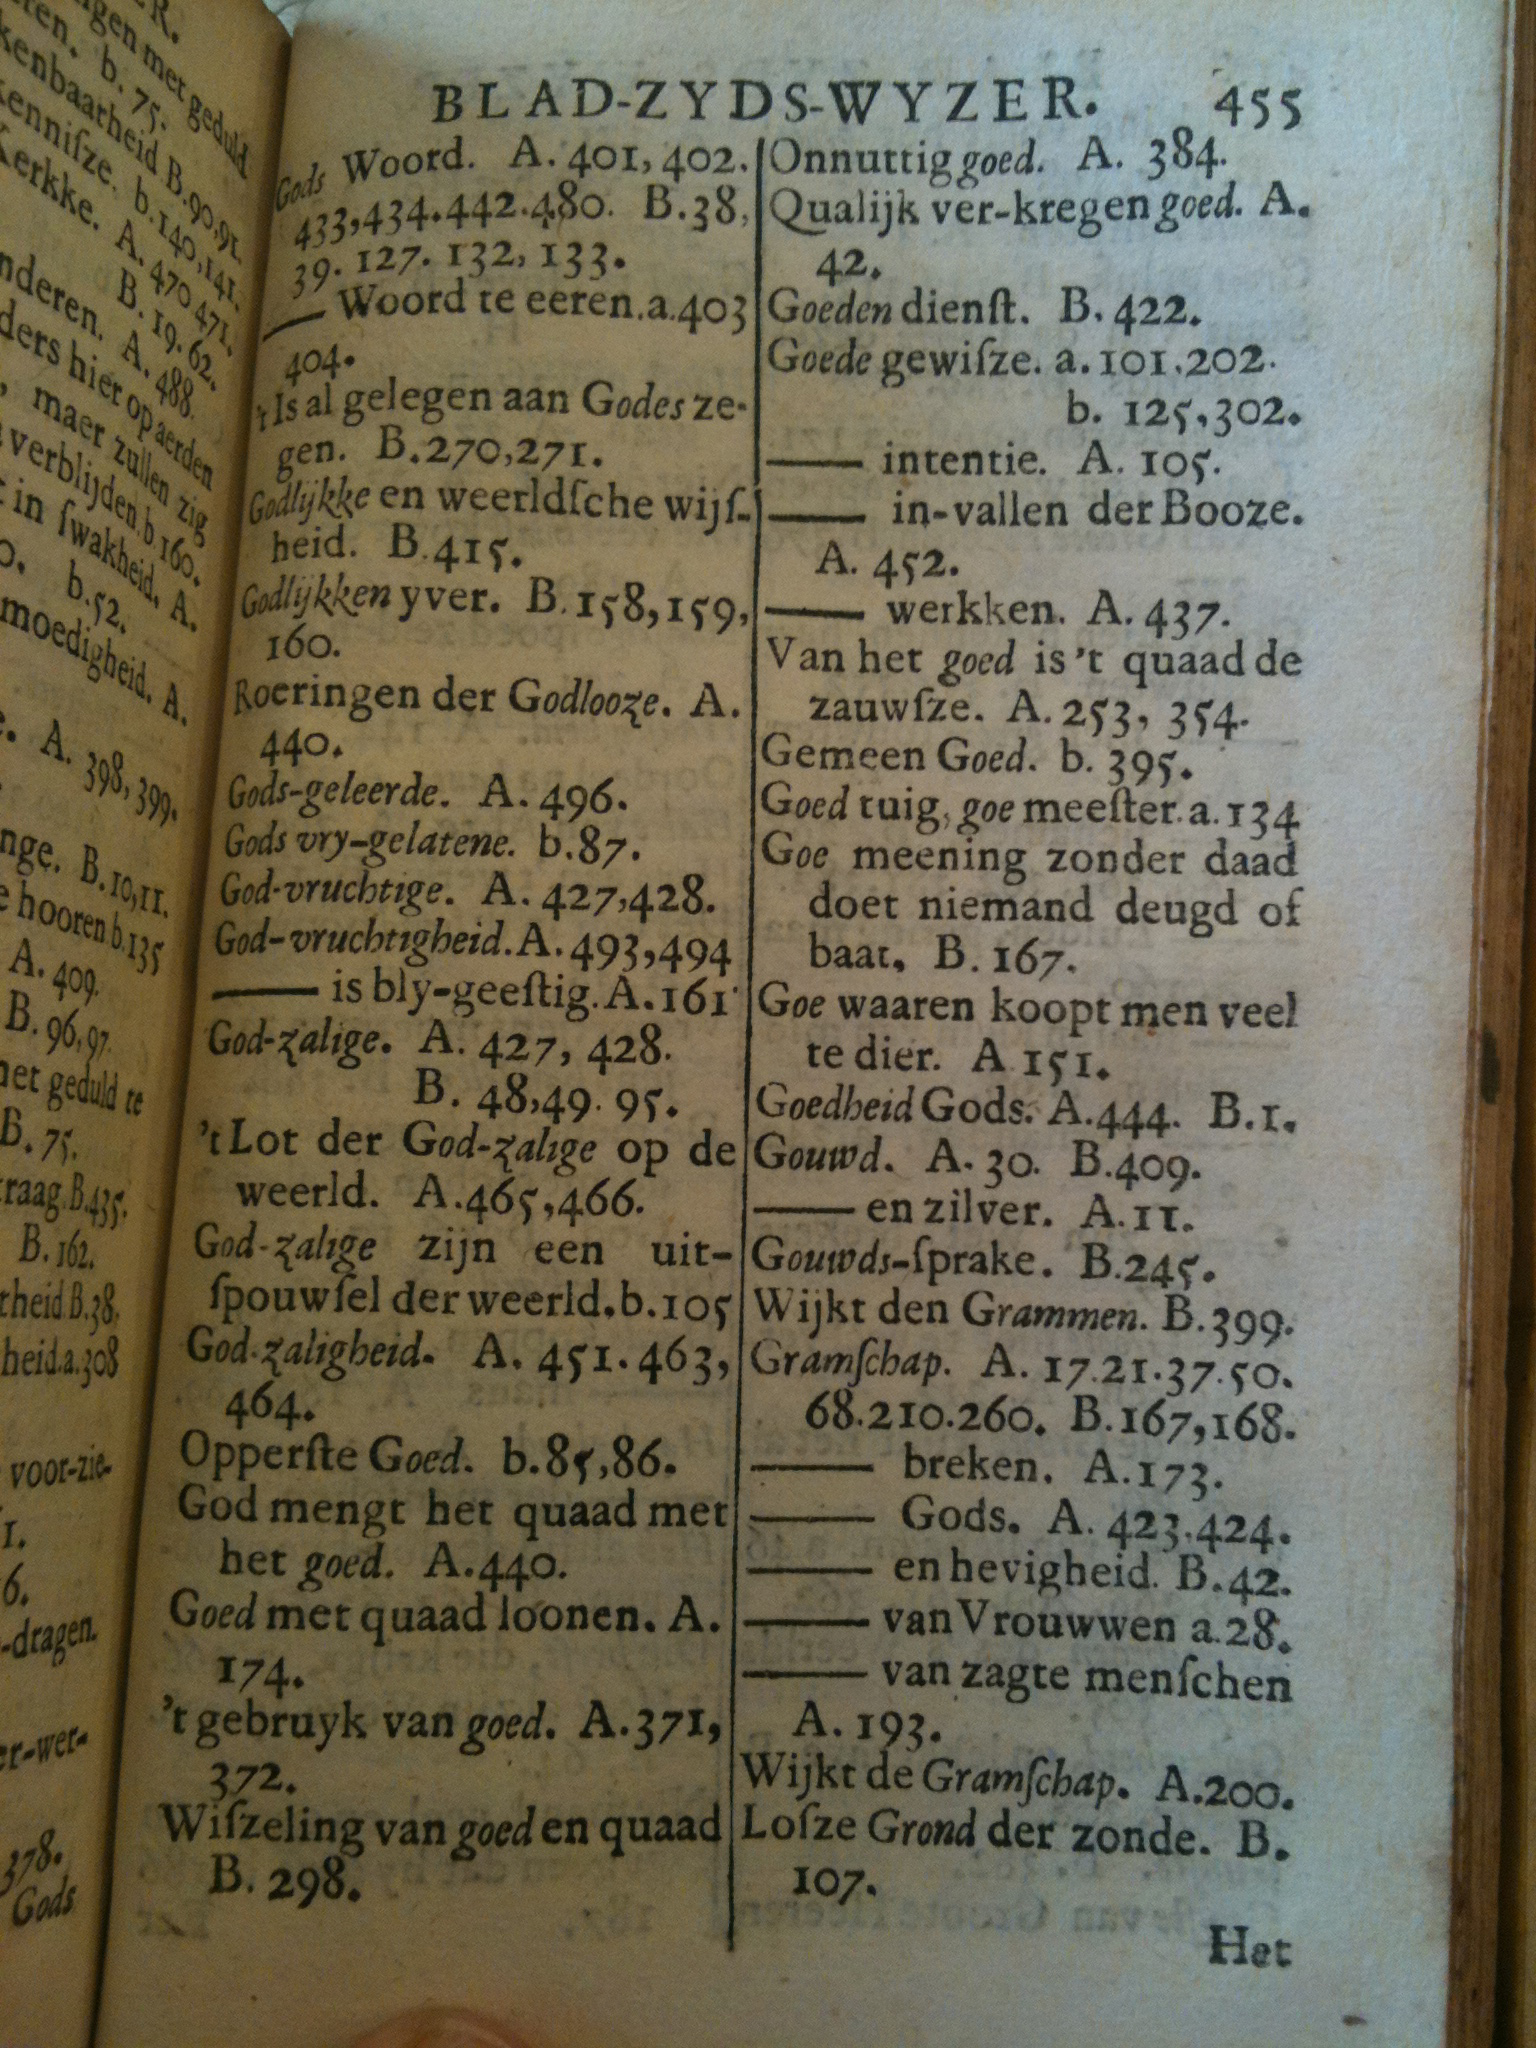 R.
ngen met geduld
b. 75.
kenbaarheid B.90,91.
kenniſze. b.140,141.
Kerkke. A. 470 471.
B. 19. 62.
nderen. A. 488.
ders hier op aerden
maer zullen zig
verblijden b.160.
in ſwakheid. A.
b.52.
moedigheid. A.
A. 398, 399.
nge. B.10,11.
hooren b.135
A. 409.
B. 96,97.
met geduld te
B. 75.
traag B.435.
B. 162.
heid B.38,
heid.a.308
voor-zie-
1.
6.
-dragen.
er-wer-
378.
Gods
BLAD-ZYDS-WYZER. 455
Gods Woord. A. 401, 402.
433,434.442.480. B.38,
39. 127. 132, 133.
—— Woord te eeren.a.403
404.
't Is al gelegen aan Godes ze-
gen. B.270,271.
Godlijkke en weerldſche wijſ-
heid. B.415.
Godlijkken yver. B.158,159,
160.
Roeringen der Godlooze. A.
440.
Gods-geleerde. A. 496.
Gods vry-gelatene. b.87.
God-vruchtige. A. 427,428.
God-vruchtigheid.A. 493,494
—— is bly-geeſtig.A.161
God-zalige. A. 427, 428.
B. 48,49. 95.
't Lot der God-zalige op de
weerld. A.465,466.
God-zalige zijn een uit-
ſpouwſel der weerld.b.105
God-zaligheid. A. 451. 463,
464.
Opperſte Goed. b.85,86.
God mengt het quaad met
het goed. A.440.
Goed met quaad loonen. A.
174.
't gebruyk van goed. A.371,
372.
Wiſzeling van goed en quaad
B. 298.
Onnuttig goed. A. 384.
Qualijk ver-kregen goed. A.
42.
Goeden dienſt. B. 422.
Goede gewiſze. a. 101.202.
b. 125,302.
—— intentie. A. 105.
—— in-vallen der Booze.
A. 452.
—— werkken. A. 437.
Van het goed is 't quaad de
zauwſze. A. 253, 354.
Gemeen Goed. b. 395.
Goed tuig, goe meeſter.a.134
Goe meening zonder daad
doet niemand deugd of
baat. B. 167.
Goe waaren koopt men veel
te dier. A 151.
Goedheid Gods. A.444. B.1.
Gouwd. A. 30. B.409.
—— en zilver. A.11.
Gouwds-ſprake. B.245.
Wijkt den Grammen. B.399.
Gramſchap. A. 17.21.37.50.
68.210.260. B.167,168.
—— breken. A.173.
—— Gods. A. 423.424.
—— en hevigheid. B.42.
—— van Vrouwwen a.28.
—— van zagte menſchen
A. 193.
Wijkt de Gramſchap. A.200.
Loſze Grond der zonde. B.
107.
Het